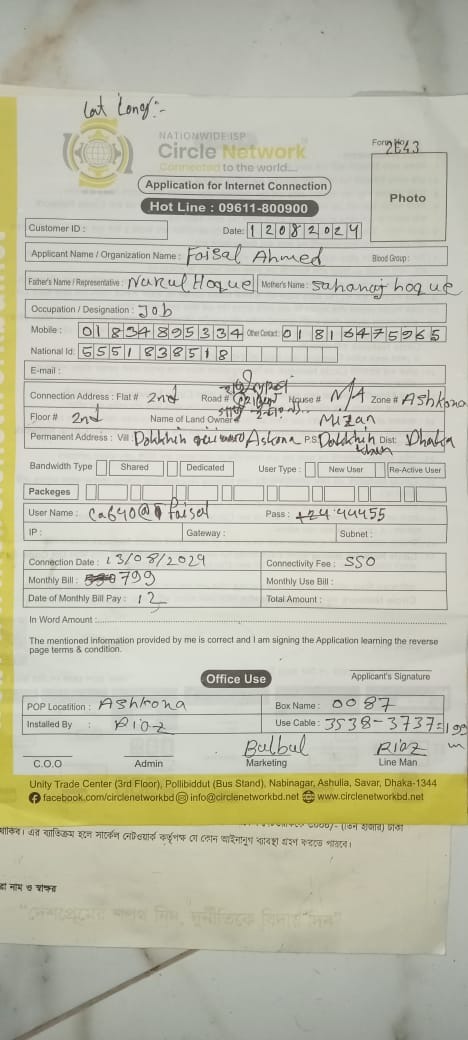 Lat Long:-
NATIONWIDE ISP
Circle Network
Connected to the world...
Form No 2643
Application for Internet Connection
Hot Line : 09611-800900
Photo
Customer ID :
Date: 12082024
Applicant Name / Organization Name : Faisal Ahmed Blood Group :
Father's Name / Representative : Nurul Hoque Mother's Name : Sahanaj hoque
Occupation / Designation : Job
Mobile : 01834895334 Other Contact: 01816475965
National Id: 5551838518
E-mail :
Connection Address : Flat # 2nd Road # House # N/A Zone # Ashkona
Floor # 2nd Name of Land Owner# Mizan
Permanent Address : Vill: Dokkhin Askona P.S Dokkhin khan Dist: Dhaka
Bandwidth Type Shared Dedicated User Type : New User Re-Active User
Packeges
User Name : Ca640@ Faisal Pass :
IP : Gateway : Subnet :
Connection Date : 13/08/2024 Connectivity Fee : 550
Monthly Bill : 799 Monthly Use Bill :
Date of Monthly Bill Pay : 12 Total Amount :
In Word Amount :
The mentioned information provided by me is correct and I am signing the Application learning the reverse
page terms & condition.
Office Use
Applicant's Signature
POP Locatition : Ashkona Box Name : 0087
Installed By : Riaz Use Cable : 3538-3737=199 m
Bulbul Riaz
C.O.O Admin Marketing Line Man
Unity Trade Center (3rd Floor), Pollibiddut (Bus Stand), Nabinagar, Ashulia, Savar, Dhaka-1344
facebook.com/circlenetworkbd info@circlenetworkbd.net www.circlenetworkbd.net
এর ব্যতিক্রম হলে সার্কেল নেটওয়ার্ক কর্তৃপক্ষ যে কোন আইনানুগ ব্যবস্থা গ্রহণ করতে পারবে।
নাম ও স্বাক্ষর
"দেশপ্রেমের শপথ নিন, দুর্নীতিকে বিদায় দিন"